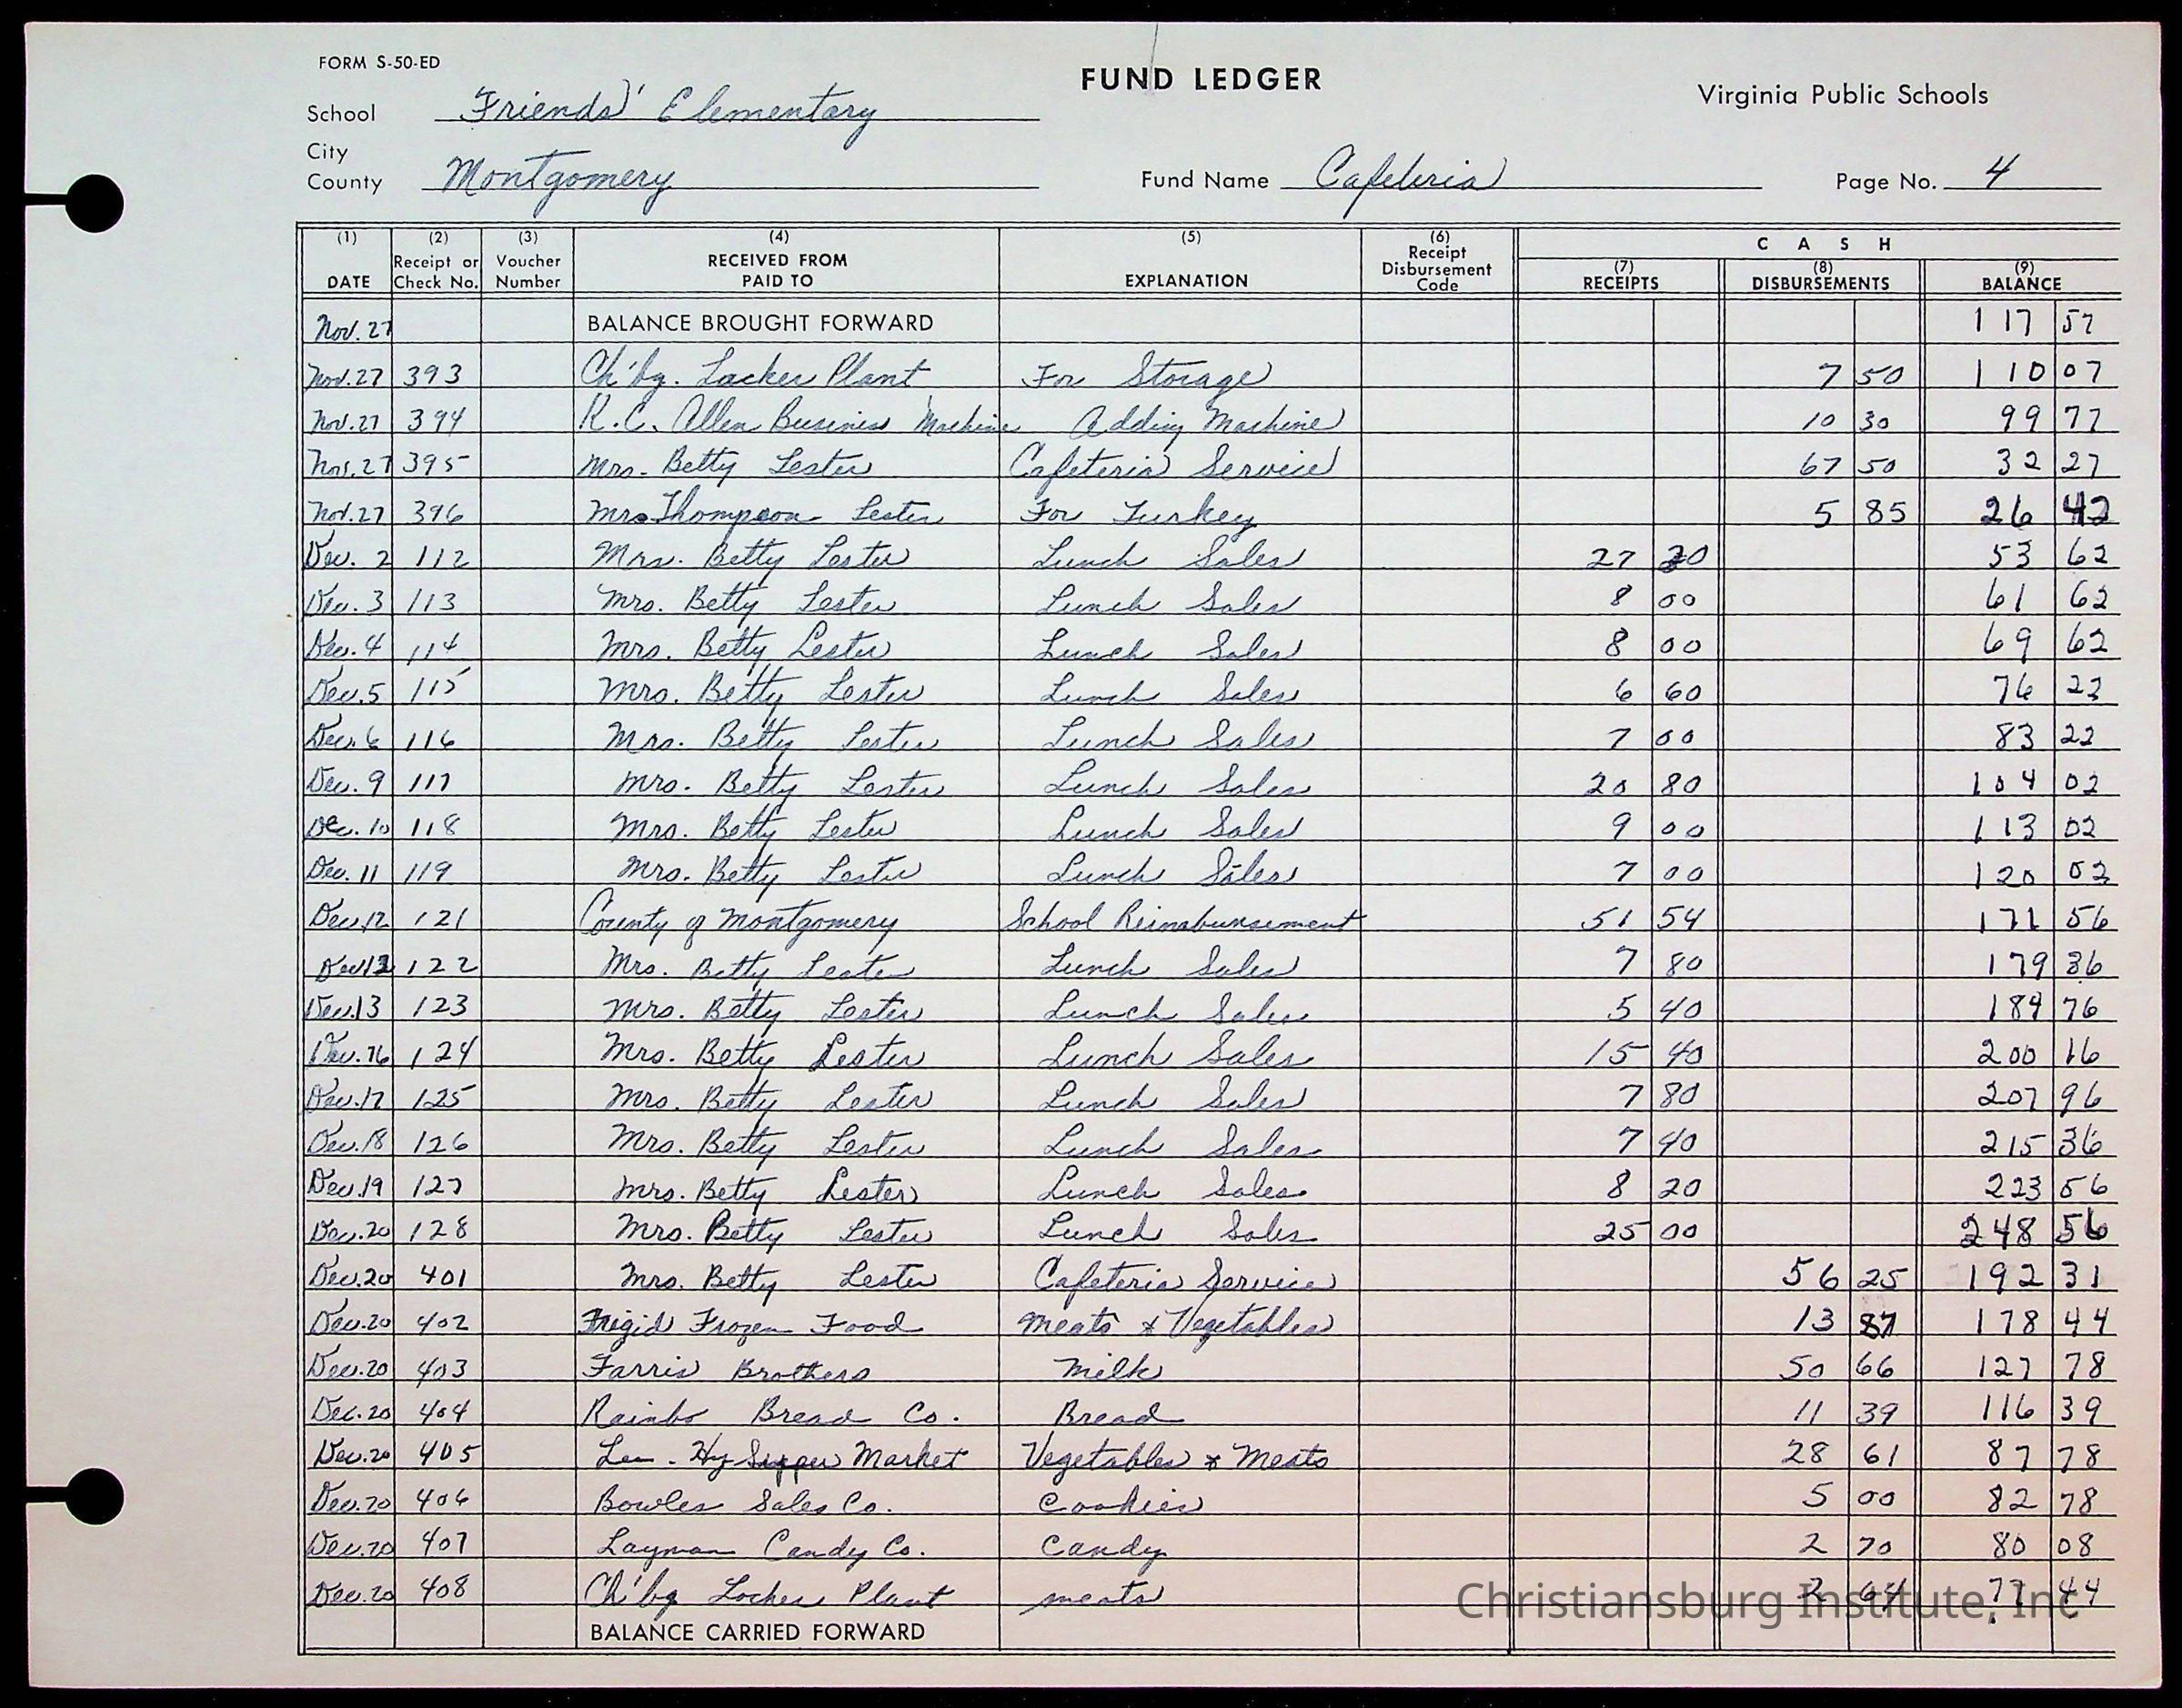 FORM S-50-ED
FUND LEDGER
Virginia Public Schools
School Friends' Elementary
City
County Montgomery Fund Name Cafeteria Page No. 4
(1) DATE (2) Receipt or Check No. (3) Voucher Number (4) RECEIVED FROM PAID TO (5) EXPLANATION (6) Receipt Disbursement Code CASH (7) RECEIPTS (8) DISBURSEMENTS (9) BALANCE
Nov. 27 BALANCE BROUGHT FORWARD 117 57
Nov. 27 393 Ch'bg. Locker Plant For Storage 7 50 110 07
Nov. 27 394 R.C. Allen Business Machine Adding Machine 10 30 99 77
Nov. 27 395 Mrs. Betty Lester Cafeteria Service 67 50 32 27
Nov. 27 396 Mrs Thompson Lester For Turkey 5 85 26 42
Dec. 2 112 Mrs. Betty Lester Lunch Sales 27 20 53 62
Dec. 3 113 Mrs. Betty Lester Lunch Sales 8 00 61 62
Dec. 4 114 Mrs. Betty Lester Lunch Sales 8 00 69 62
Dec. 5 115 Mrs. Betty Lester Lunch Sales 6 60 76 22
Dec. 6 116 Mrs. Betty Lester Lunch Sales 7 00 83 22
Dec. 9 117 Mrs. Betty Lester Lunch Sales 20 80 104 02
Dec. 10 118 Mrs. Betty Lester Lunch Sales 9 00 113 02
Dec. 11 119 Mrs. Betty Lester Lunch Sales 7 00 120 02
Dec. 12 121 County of Montgomery School Reimabursement 51 54 171 56
Dec 12 122 Mrs. Betty Lester Lunch Sales 7 80 179 36
Dec. 13 123 Mrs. Betty Lester Lunch Sales 5 40 184 76
Dec. 16 124 Mrs. Betty Lester Lunch Sales 15 40 200 16
Dec. 17 125 Mrs. Betty Lester Lunch Sales 7 80 207 96
Dec. 18 126 Mrs. Betty Lester Lunch Sales 7 40 215 36
Dec. 19 127 Mrs. Betty Lester Lunch Sales 8 20 223 56
Dec. 20 128 Mrs. Betty Lester Lunch Sales 25 00 248 56
Dec. 20 401 Mrs. Betty Lester Cafeteria Service 56 25 192 31
Dec. 20 402 Frigid Frozen Food Meats & Vegetables 13 87 178 44
Dec. 20 403 Farris Brothers Milk 50 66 127 78
Dec. 20 404 Rainbo Bread Co. Bread 11 39 116 39
Dec. 20 405 Lee-Hy Supper Market Vegetables & Meats 28 61 87 78
Dec. 20 406 Bowles Sales Co. Cookies 5 00 82 78
Dec. 20 407 Layman Candy Co. Candy 2 70 80 08
Dec. 20 408 Ch'bg Locker Plant meats 2 64 77 44
Christiansburg Institute, Inc
BALANCE CARRIED FORWARD